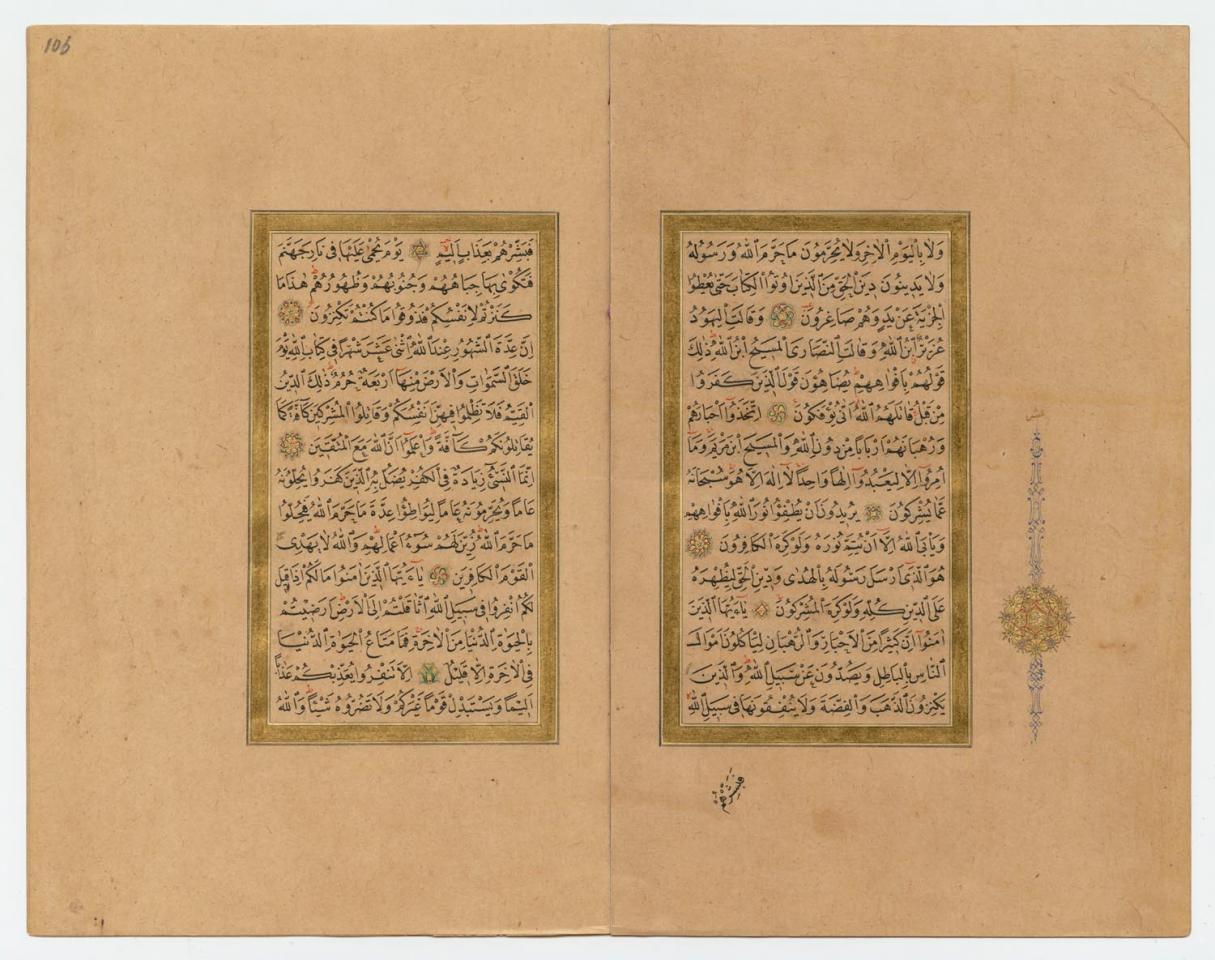 وَلَا بِالْيَوْمِ الْاٰخِرِ وَلَا يُحَرِّمُونَ مَا حَرَّمَ اللّٰهُ وَرَسُولُهُ
وَلَا يَدِينُونَ دِينَ الْحَقِّ مِنَ الَّذِينَ اُوتُوا الْكِتَابَ حَتّٰى يُعْطُوا
الْجِزْيَةَ عَنْ يَدٍ وَهُمْ صَاغِرُونَ وَقَالَتِ الْيَهُودُ
عُزَيْرٌ ابْنُ اللّٰهِ وَقَالَتِ النَّصَارَى الْمَسِيحُ ابْنُ اللّٰهِ ذٰلِكَ
قَوْلُهُمْ بِاَفْوَاهِهِمْ يُضَاهِؤُنَ قَوْلَ الَّذِينَ كَفَرُوا
مِنْ قَبْلُ قَاتَلَهُمُ اللّٰهُ اَنّٰى يُؤْفَكُونَ اِتَّخَذُوا اَحْبَارَهُمْ
وَرُهْبَانَهُمْ اَرْبَابًا مِنْ دُونِ اللّٰهِ وَالْمَسِيحَ ابْنَ مَرْيَمَ وَمَا
اُمِرُوا اِلَّا لِيَعْبُدُوا اِلٰهًا وَاحِدًا لَا اِلٰهَ اِلَّا هُوَ سُبْحَانَهُ
عَمَّا يُشْرِكُونَ يُرِيدُونَ اَنْ يُطْفِؤُا نُورَ اللّٰهِ بِاَفْوَاهِهِمْ
وَيَأْبَى اللّٰهُ اِلَّا اَنْ يُتِمَّ نُورَهُ وَلَوْ كَرِهَ الْكَافِرُونَ
هُوَ الَّذِى اَرْسَلَ رَسُولَهُ بِالْهُدٰى وَدِينِ الْحَقِّ لِيُظْهِرَهُ
عَلَى الدِّينِ كُلِّهِ وَلَوْ كَرِهَ الْمُشْرِكُونَ يَاءَيُّهَا الَّذِينَ
اٰمَنُوا اِنَّ كَثِيرًا مِنَ الْاَحْبَارِ وَالرُّهْبَانِ لَيَأْكُلُونَ اَمْوَالَ
النَّاسِ بِالْبَاطِلِ وَيَصُدُّونَ عَنْ سَبِيلِ اللّٰهِ وَالَّذِينَ
يَكْنِزُونَ الذَّهَبَ وَالْفِضَّةَ وَلَا يُنْفِقُونَهَا فِى سَبِيلِ اللّٰهِ
فَبَشِّرْهُمْ
عشر
106
فَبَشِّرْهُمْ بِعَذَابٍ اَلِيمٍ يَوْمَ يُحْمٰى عَلَيْهَا فِى نَارِ جَهَنَّمَ
فَتُكْوٰى بِهَا جِبَاهُهُمْ وَجُنُوبُهُمْ وَظُهُورُهُمْ هٰذَا مَا
كَنَزْتُمْ لِاَنْفُسِكُمْ فَذُوقُوا مَا كُنْتُمْ تَكْنِزُونَ
اِنَّ عِدَّةَ الشُّهُورِ عِنْدَ اللّٰهِ اثْنٰى عَشَرَ شَهْرًا فِى كِتَابِ اللّٰهِ يَوْمَ
خَلَقَ السَّمٰوَاتِ وَالْاَرْضَ مِنْهَا اَرْبَعَةٌ حُرُمٌ ذٰلِكَ الدِّينُ
الْقَيِّمُ فَلَا تَظْلِمُوا فِيهِنَّ اَنْفُسَكُمْ وَقَاتِلُوا الْمُشْرِكِينَ كَافَّةً كَمَا
يُقَاتِلُونَكُمْ كَافَّةً وَاعْلَمُوا اَنَّ اللّٰهَ مَعَ الْمُتَّقِينَ
اِنَّمَا النَّسِىءُ زِيَادَةٌ فِى الْكُفْرِ يُضَلُّ بِهِ الَّذِينَ كَفَرُوا يُحِلُّونَهُ
عَامًا وَيُحَرِّمُونَهُ عَامًا لِيُوَاطِؤُا عِدَّةَ مَا حَرَّمَ اللّٰهُ فَيُحِلُّوا
مَا حَرَّمَ اللّٰهُ زُيِّنَ لَهُمْ سُوءُ اَعْمَالِهِمْ وَاللّٰهُ لَا يَهْدِى
الْقَوْمَ الْكَافِرِينَ يَاءَيُّهَا الَّذِينَ اٰمَنُوا مَا لَكُمْ اِذَا قِيلَ
لَكُمُ انْفِرُوا فِى سَبِيلِ اللّٰهِ اثَّاقَلْتُمْ اِلَى الْاَرْضِ اَرَضِيتُمْ
بِالْحَيٰوةِ الدُّنْيَا مِنَ الْاٰخِرَةِ فَمَا مَتَاعُ الْحَيٰوةِ الدُّنْيَا
فِى الْاٰخِرَةِ اِلَّا قَلِيلٌ اِلَّا تَنْفِرُوا يُعَذِّبْكُمْ عَذَابًا
اَلِيمًا وَيَسْتَبْدِلْ قَوْمًا غَيْرَكُمْ وَلَا تَضُرُّوهُ شَيْئًا وَاللّٰهُ